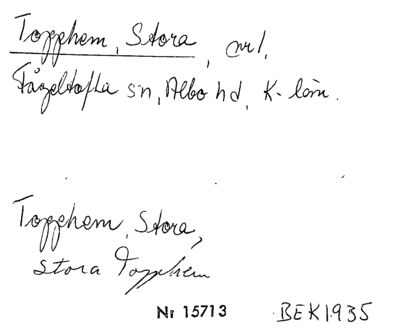 Topphem, Stora, nr 1,
Fågeltofta sn, Albo hd, K-län.
Topphem, Stora,
Stora Topphem
Nr 15713 BEK1935